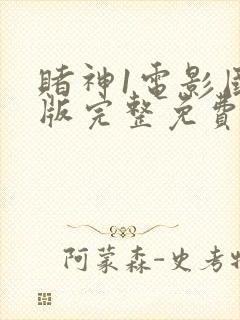 賭神1電影
版完整免費
阿蒙森-史考